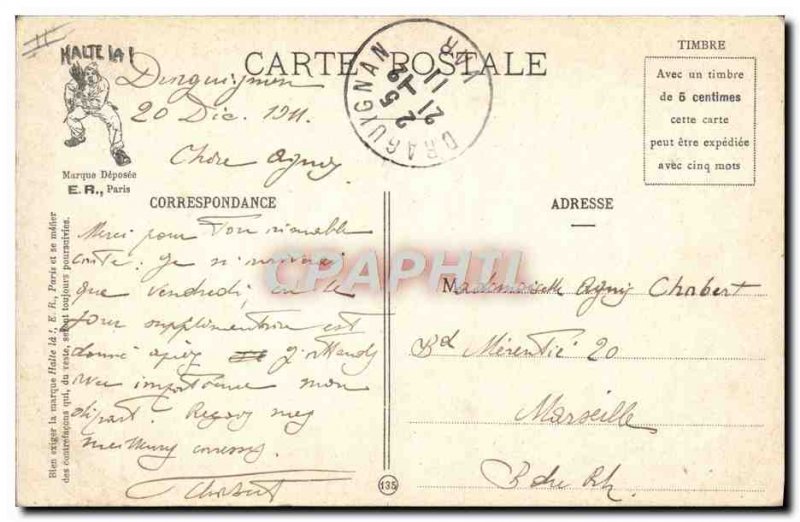 HALTE LA !
Marque Déposée
E. R., Paris
CARTE POSTALE
DRAGUIGNAN
VAR
2 5
21
11
TIMBRE
Avec un timbre
de 5 centimes
cette carte
peut être expédiée
avec cinq mots
Draguignan
20 Déc. 1911.
Chère Agnès
CORRESPONDANCE
Merci pour ton aimable
carte. Je n'arriverai
que vendredi, on le
jour supplémentaire est
donné après J'attends
avec impatience mon
départ. Reçois mes
meilleures caresses.
Chabert
ADRESSE
Mademoiselle Agnès Chabert
Bd Mérentié 20
Marseille
B. du Rh.
CPAPHIL
135
Bien exiger la marque Halte là !, E. R., Paris et se méfier
des contrefaçons qui, du reste, seront toujours poursuivies.